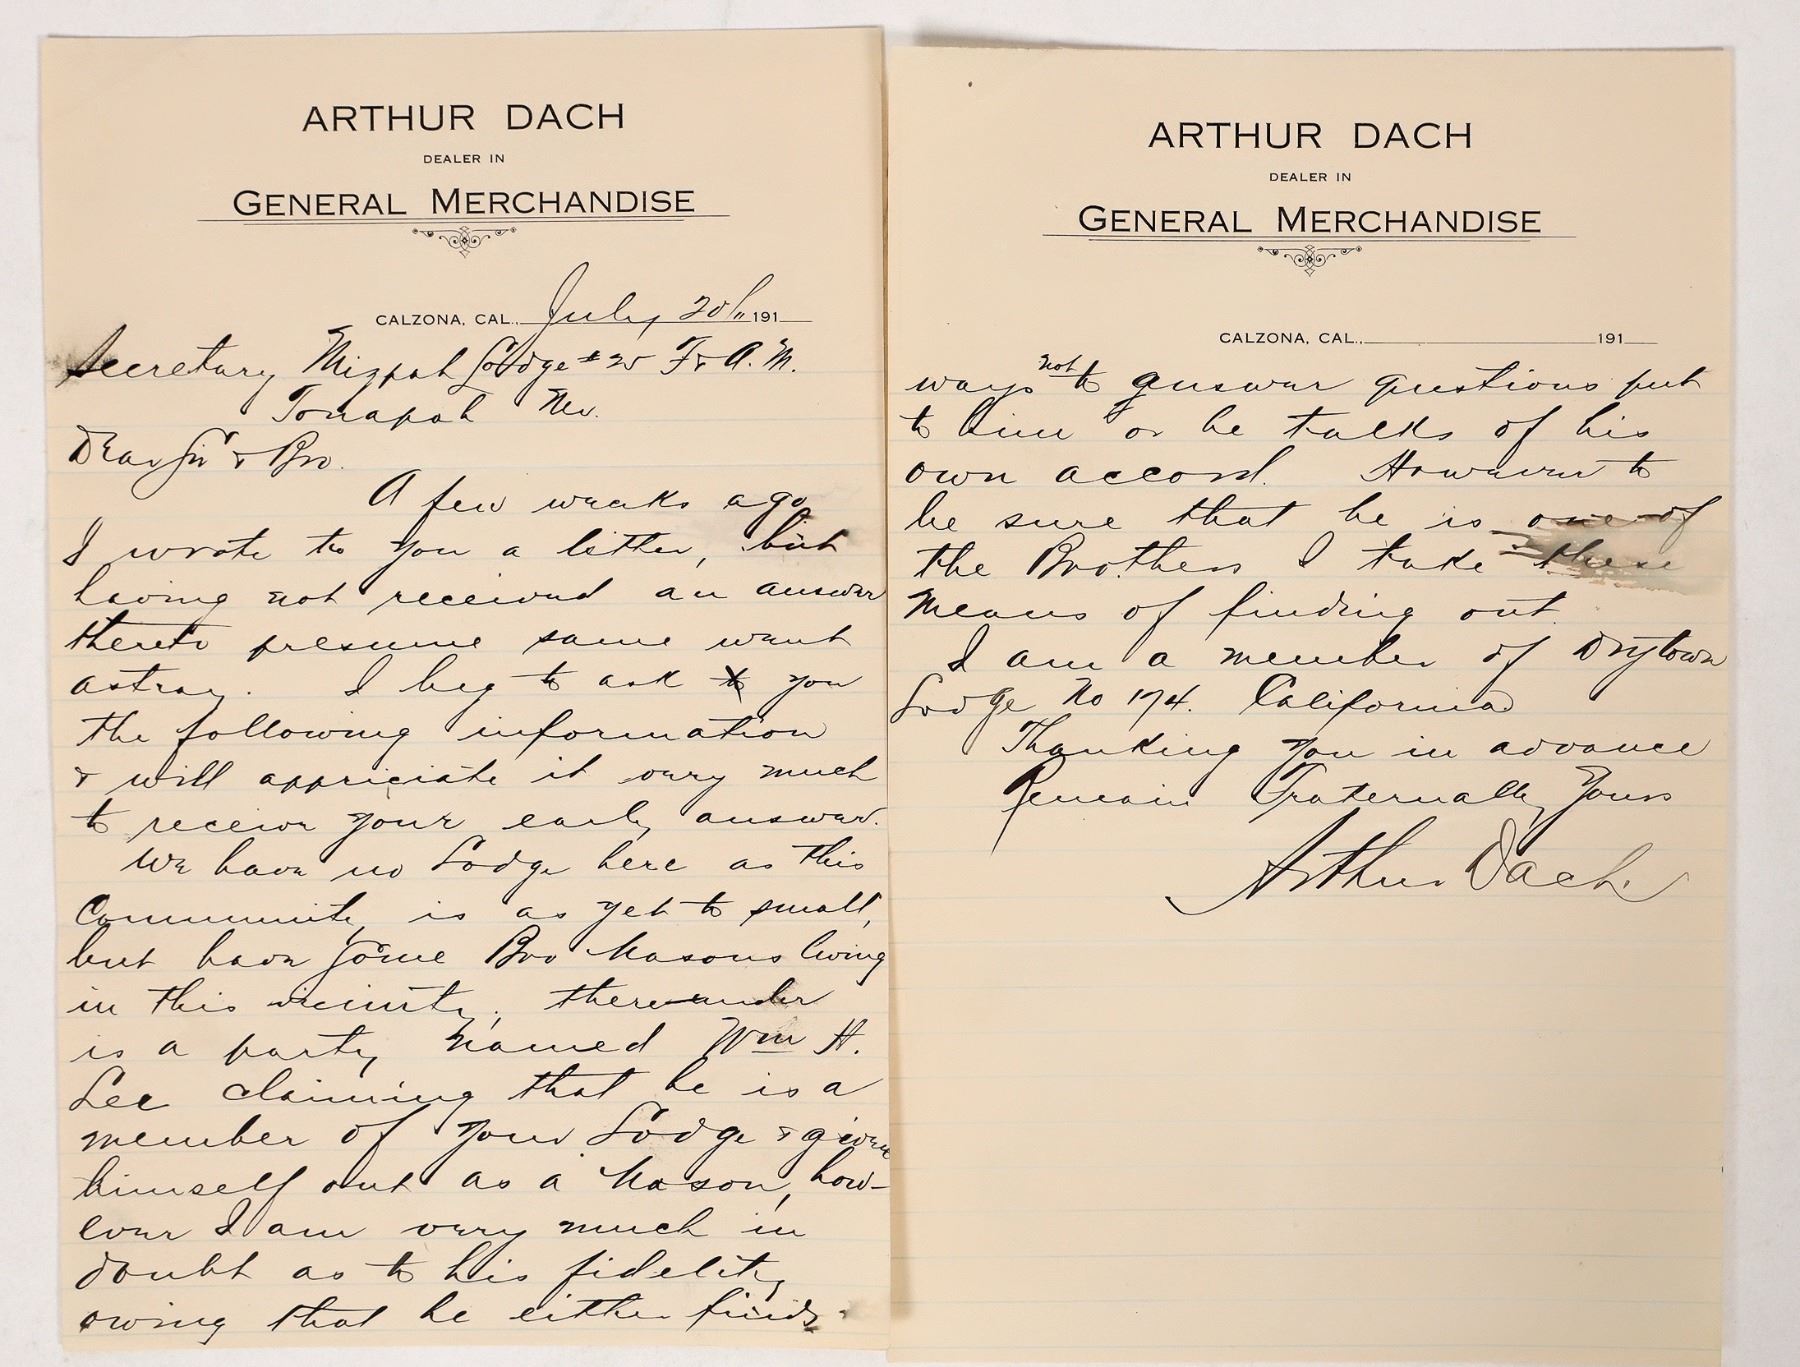 ARTHUR DACH
DEALER IN
GENERAL MERCHANDISE
CALZONA, CAL., July 20th 191
Secretary Mizpah Lodge # 25 F & A. M.
Tonapah Nev.
Dear Sir & Bro.
A few weeks ago
I wrote to you a letter, but
having not received an answer
thereto presume same went
astray. I beg to ask to you
the following information
& will appriciate it very much
to receive your early answer.
We have no Lodge here as this
Community is as yet to small,
but have some Bro Masons living
in this vicinity, thereunder
is a party named Wm H.
Lee claiming that he is a
member of your Lodge & given
himself out as a Mason, how-
ever I am very much in
doubt as to his fidelity
owing that he either finds
ARTHUR DACH
DEALER IN
GENERAL MERCHANDISE
CALZONA, CAL., 191
ways not to answer questions put
to him or he talks of his
own accord. However to
be sure that he is one of
the Brothers I take these
means of finding out.
I am a member of Drytown
Lodge No 174. California
Thanking you in advance
Remain Fraternally Yours
Arthur Dach.